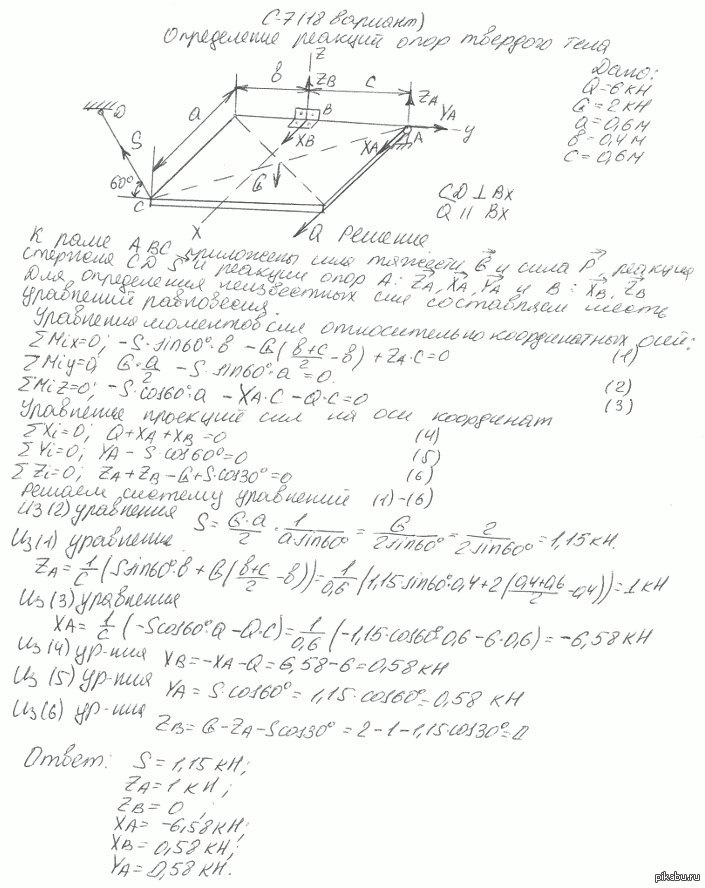 С-7 (18 вариант)
Определение реакций опор твердого тела
Дано:
Q=6 кН
G=2 кН
a=0,6 м
в=0,4 м
c=0,6 м
Z
в
ZB
c
ZA
YA
y
B
XB
XA
A
D
a
S
60°
C
G
X
Q
CD ⊥ Bx
Q || Bx
Решение
К раме ABC приложены сила тяжести G и сила P, реакция
стержня CD S и реакции опор A: ZA, XA, YA и B: XB, ZB
Для определения неизвестных сил составляем шесть
уравнений равновесия.
Уравнения моментов сил относительно координатных осей:
ΣMix=0; -S·sin60°·в -G((в+c)/2 -в) +ZA·c=0 (1)
ΣMiy=0; G·a/2 -S·sin60°·a=0. (2)
ΣMiz=0; -S·cos60°·a -XA·C -Q·C=0 (3)
Уравнение проекций сил на оси координат
ΣXi=0; Q+XA+XB=0 (4)
ΣYi=0; YA-S·cos60°=0 (5)
ΣZi=0; ZA+ZB-G+S·cos30°=0 (6)
Решаем систему уравнений (1)-(6)
Из (2) уравнения S= G·a/2 · 1/(a sin60°) = G/(2sin60°) = 2/(2sin60°) = 1,15 кН.
Из (1) уравнение
ZA= 1/c (S sin60°·в + G((в+c)/2 -в))= 1/0,6 (1,15·sin60°·0,4+2((0,4+0,6)/2 -0,4))=1 кН
Из (3) уравнения
XA= 1/c (-Scos60°·a -Q·C)= 1/0,6 (-1,15·cos60°·0,6-6·0,6)=-6,58 кН
Из (4) ур-ния XB=-XA-Q=6,58-6=0,58 кН
Из (5) ур-ния YA=S·cos60°=1,15·cos60°=0,58 кН
Из (6) ур-ния ZB=G-ZA-Scos30°=2-1-1,15cos30°=0
Ответ: S=1,15 кН;
ZA=1 кН;
ZB=0 ;
XA= -6,58 кН;
XB= 0,58 кН;
YA=0,58 кН.
pikabu.ru